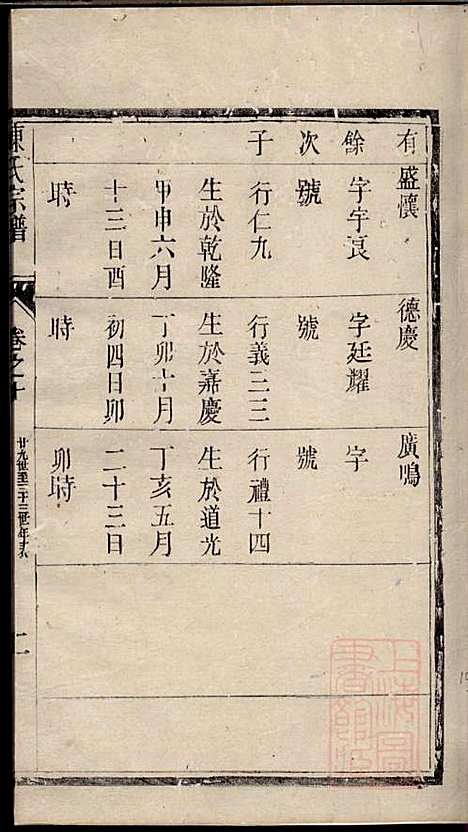 有餘次子
盛懷
字宇良
號
行仁九
生於乾隆
甲申六月
十三日酉
時
德慶
字廷耀
號
行義三三
生於嘉慶
丁卯十月
初四日卯
時
廣鳴
字
號
行禮十四
生於道光
丁亥五月
二十三日
卯時
陳氏宗譜
卷之十
廿九世至三十三世年表
二
上海圖
書館藏